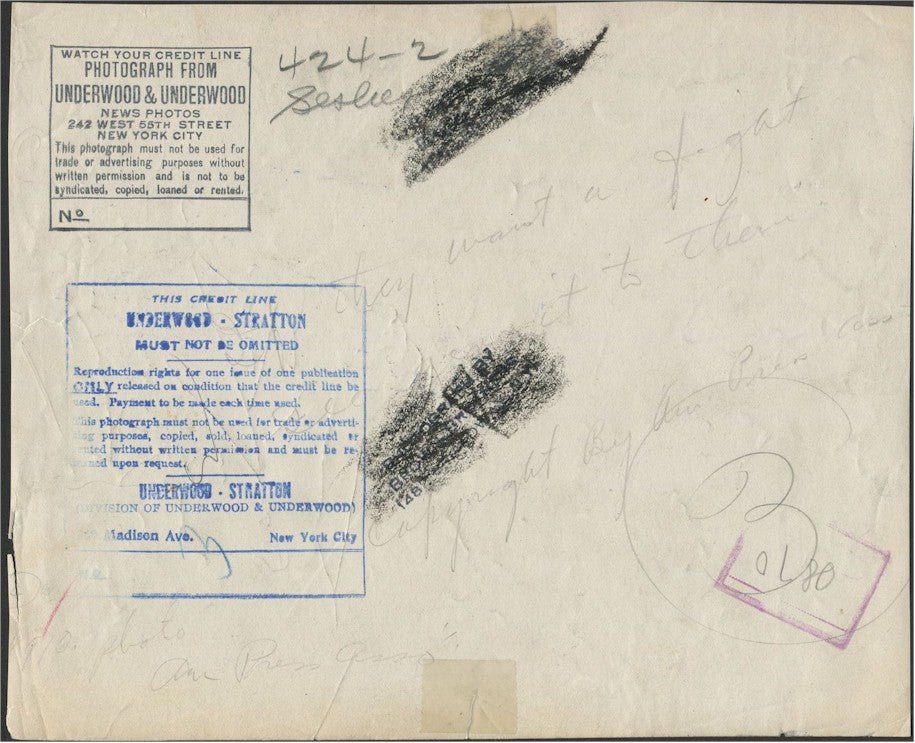 WATCH YOUR CREDIT LINE
PHOTOGRAPH FROM
UNDERWOOD & UNDERWOOD
NEWS PHOTOS
242 WEST 55TH STREET
NEW YORK CITY
This photograph must not be used for
trade or advertising purposes without
written permission and is not to be
syndicated, copied, loaned or rented.
No
424-2
they want a fight
it to them
THIS CREDIT LINE
UNDERWOOD - STRATTON
MUST NOT BE OMITTED
Reproduction rights for one issue of one publication
ONLY released on condition that the credit line be
used. Payment to be made each time used.
This photograph must not be used for trade or adverti-
ing purposes, copied, sold, loaned, syndicated or
rented without written permission and must be re-
turned upon request.
UNDERWOOD - STRATTON
(DIVISION OF UNDERWOOD & UNDERWOOD)
Madison Ave. New York City
No.
BY
Copyright By Am Press Asso
B
Photo
Am Press Asso